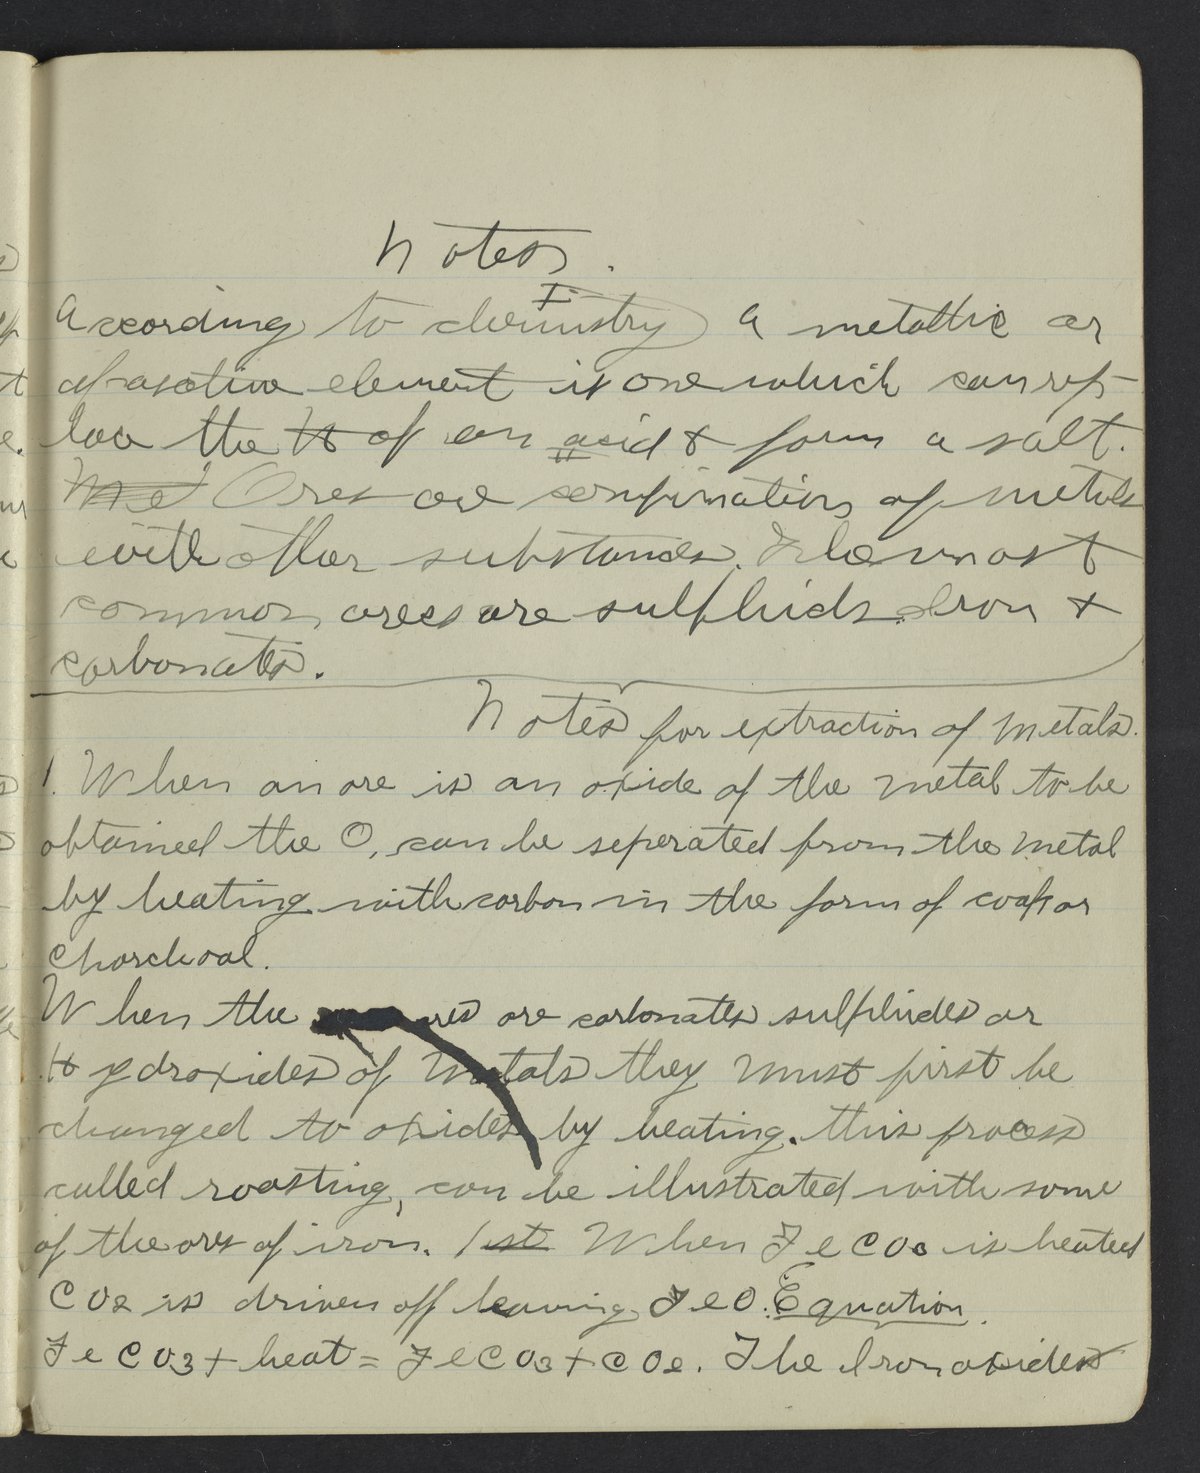 Notes.
I
According to chemistry a metallic or
element is one which can rep-
lace the H of an acid & form a salt.
Met Ores are combinations of metals
with other substances. The most
common ores are sulphids Iron &
carbonates.
Notes for extraction of Metals.
1. When an ore is an oxide of the metal to be
obtained the O, can be seperated from the metal
by heating with carbon in the form of coal or
Charchoal.
When the ores are carbonates sulphides or
Hydroxides of Metals they must first be
changed to oxides by heating. this process
called roasting, can be illustrated with some
of the ores of iron. 1st When FeCO3 is heated
CO2 is driven off leaving FeO. Equation.
FeCO3 + heat = FeCO3 + CO2. The Iron oxides